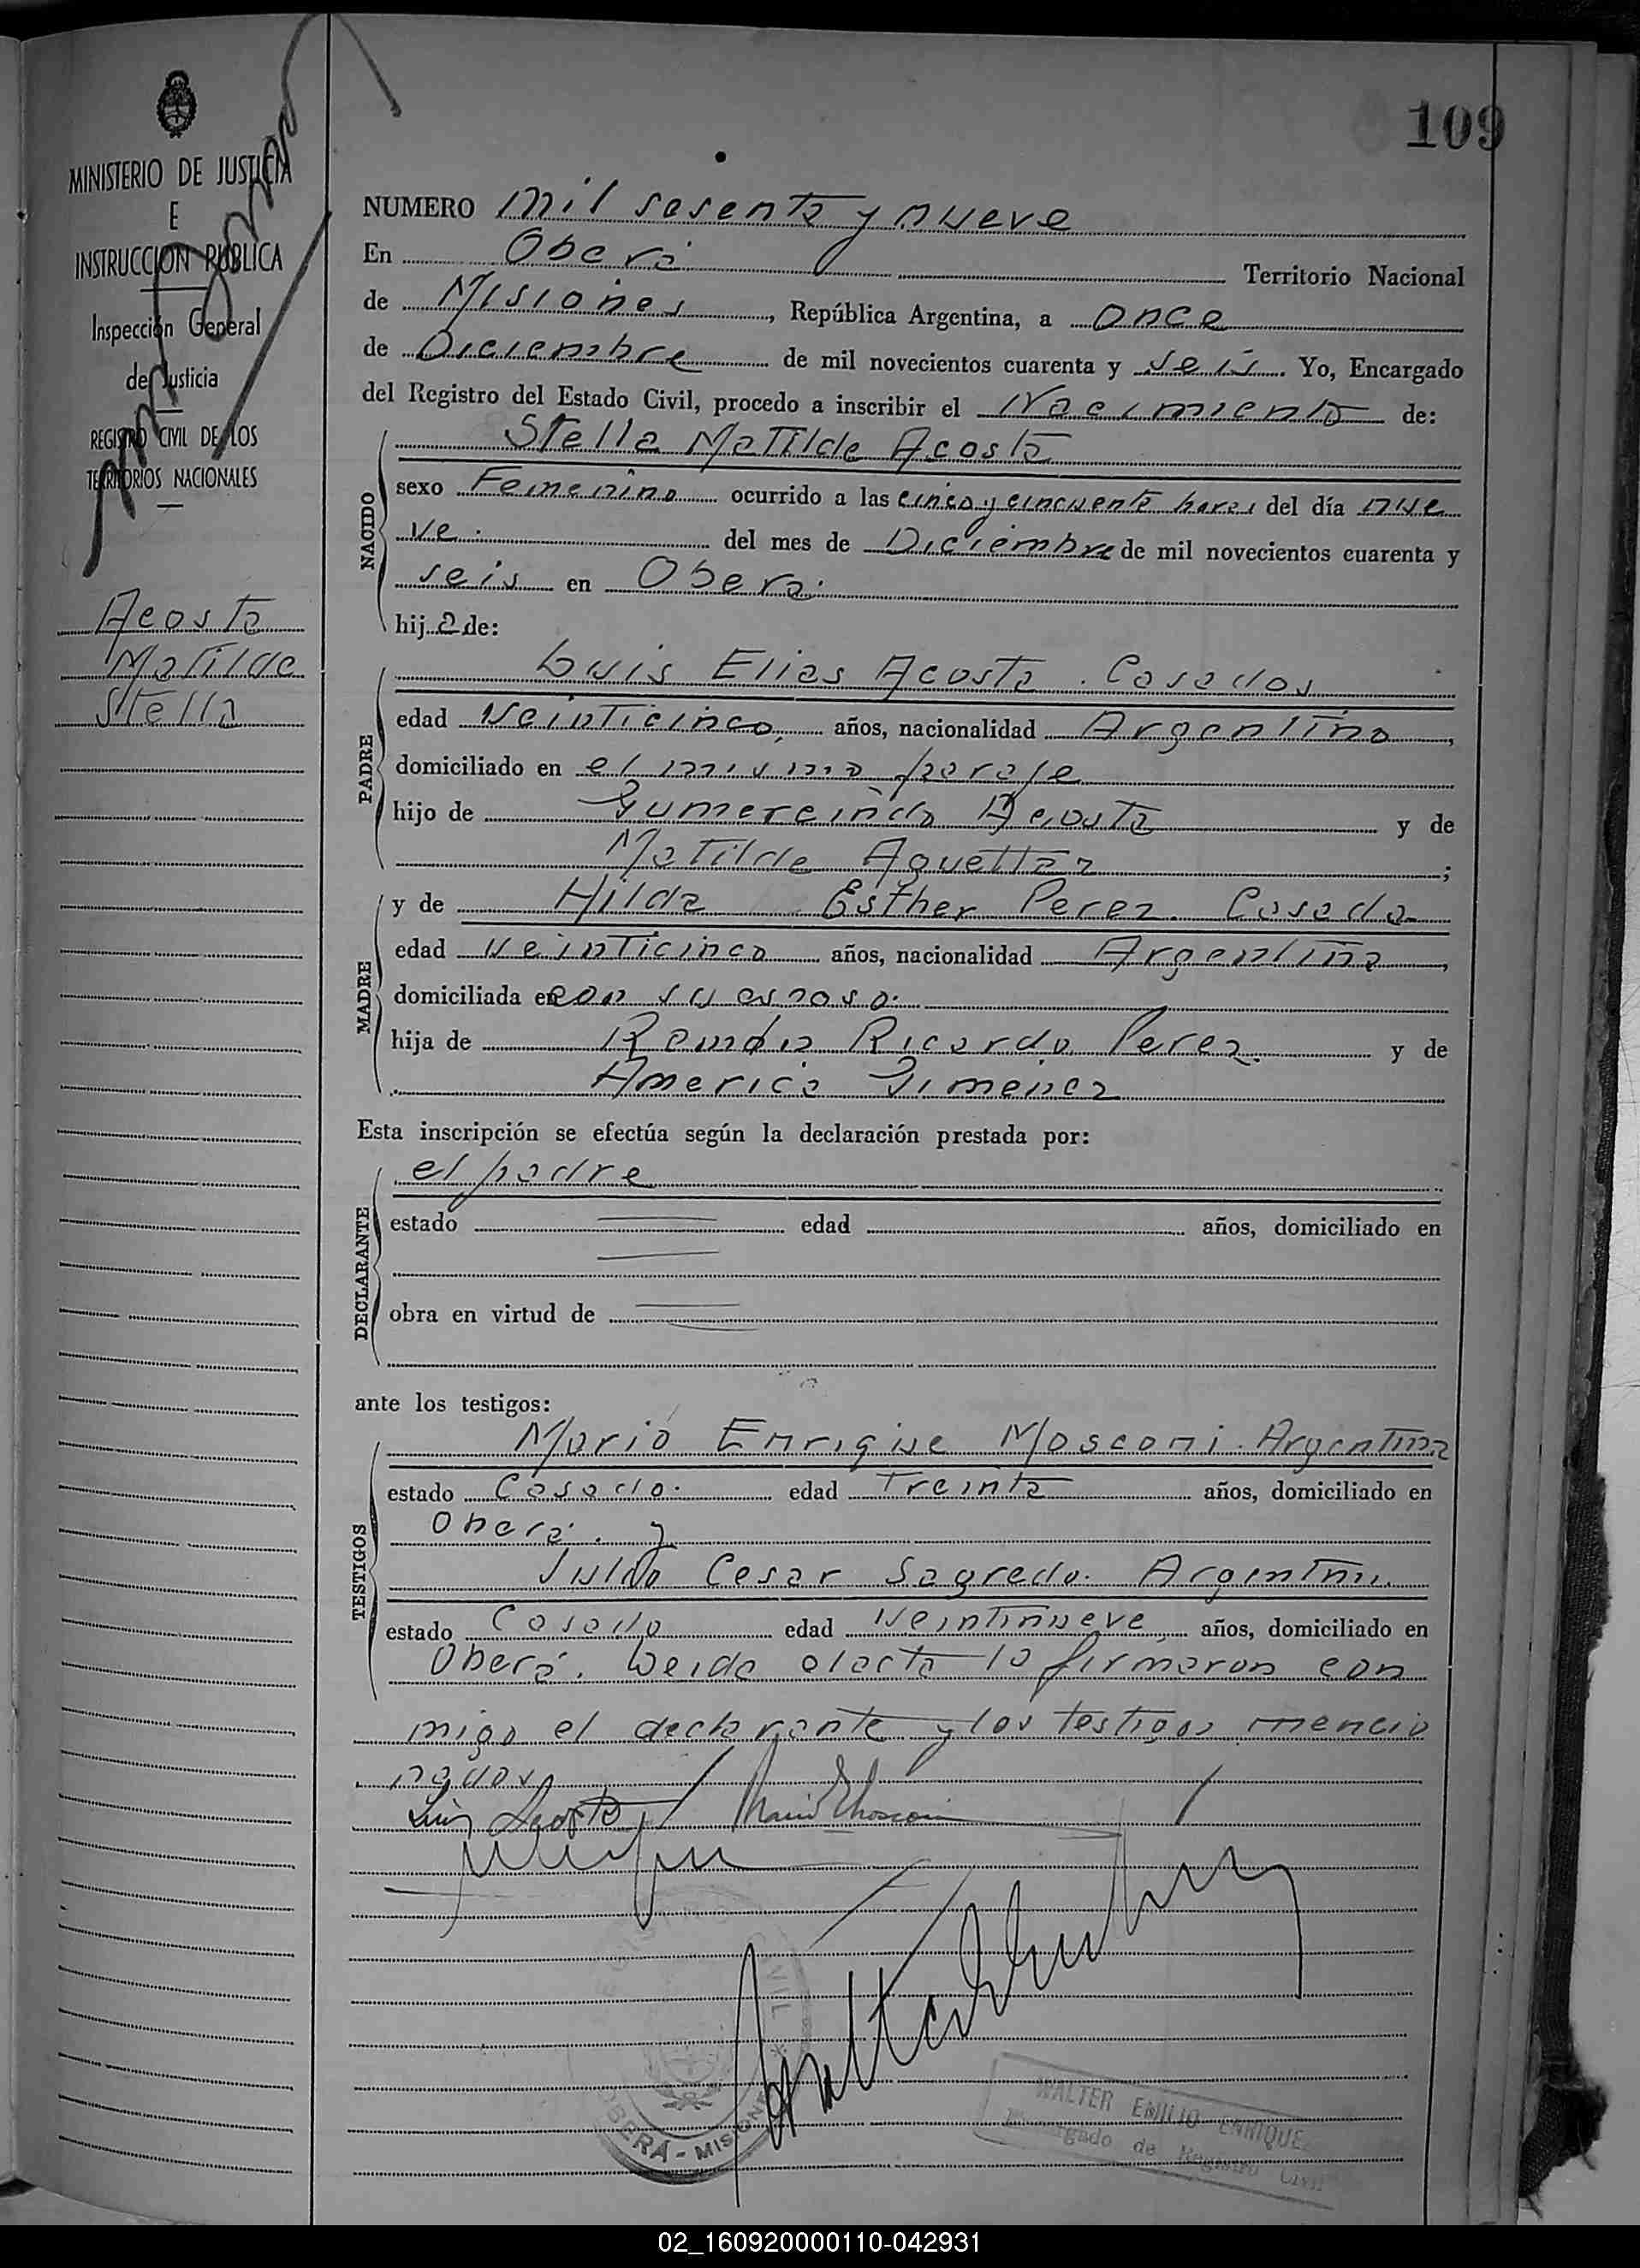 109
MINISTERIO DE JUSTICIA
E
INSTRUCCION PUBLICA
Inspección General
de Justicia
REGISTRO CIVIL DE LOS
TERRITORIOS NACIONALES
Acosta
Matilde
Stella
NUMERO mil sesenta y nueve
En Oberá Territorio Nacional
de Misiones, República Argentina, a once
de Diciembre de mil novecientos cuarenta y seis. Yo, Encargado
del Registro del Estado Civil, procedo a inscribir el Nacimiento de:
Stella Matilde Acosta
NACIDO
sexo Femenino ocurrido a las cinco y cincuenta horas del día nue
ve. del mes de Diciembre de mil novecientos cuarenta y
seis en Oberá.
hija de:
Luis Elias Acosta. Casados
PADRE
edad Veinticinco, años, nacionalidad Argentino,
domiciliado en el mismo paraje
hijo de Gumercindo Acosta y de
Matilde ;
MADRE
y de Hilda Esther Perez. Casada
edad veinticinco años, nacionalidad Argentina,
domiciliada en con su esposo.
hija de Ramón Ricardo Perez. y de
America Gimenez
Esta inscripción se efectúa según la declaración prestada por:
el padre
DECLARANTE
estado edad años, domiciliado en
obra en virtud de
ante los testigos:
Mario Enrique Mosconi. Argentino
TESTIGOS
estado Casado. edad Treinta años, domiciliado en
Oberá. y
Julio Cesar Sagredo. Argentino.
estado Casado edad Veintinueve, años, domiciliado en
Oberá. Leida el acta la firmaron con
migo el declarante y los testigos mencio
nados
Luis Acosta
Mario E Mosconi
CIVIL *
OBERÁ - MISIONES
WALTER EMILIO ENRIQUE
Encargado de Registro Civil
02_160920000110-042931